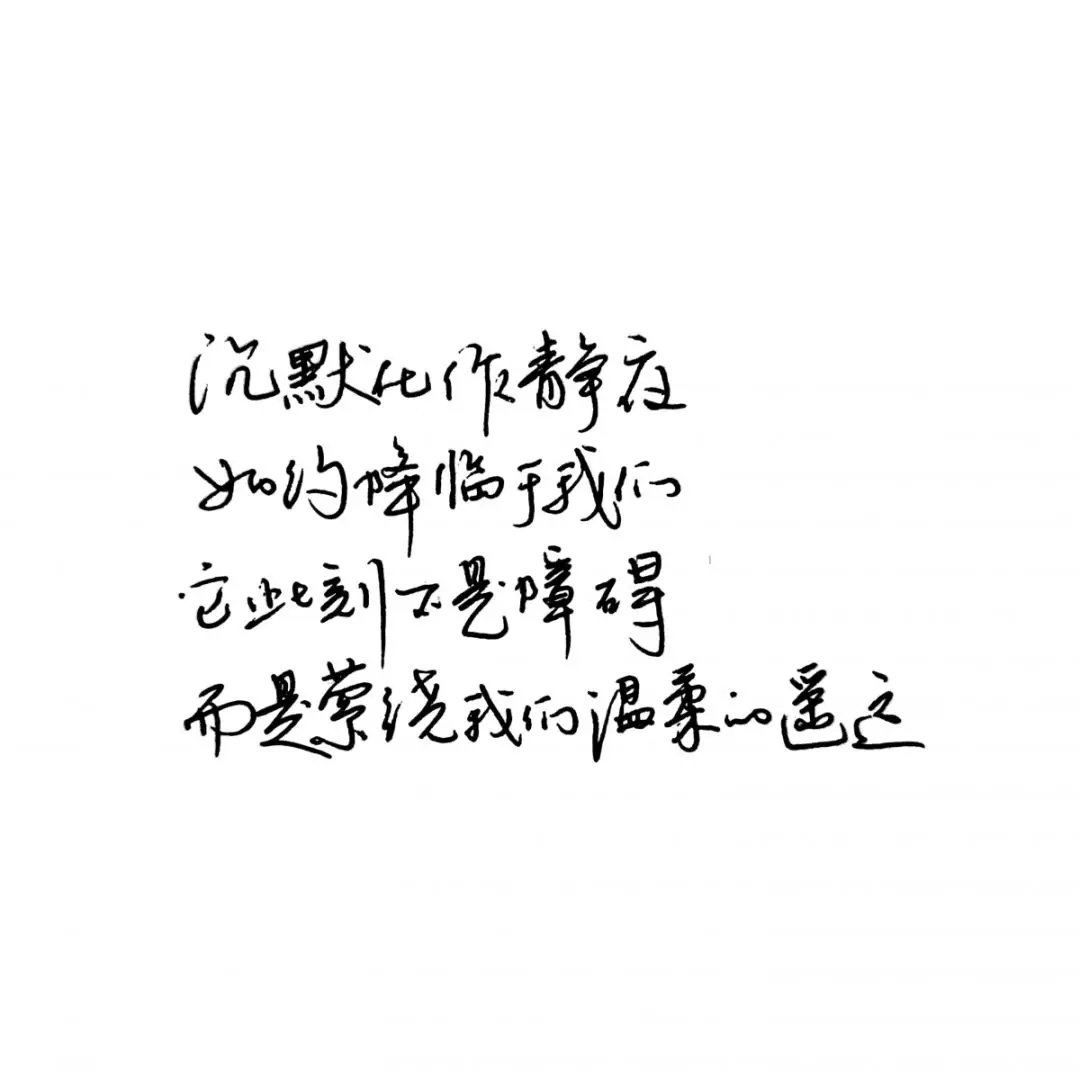 沉默化作静夜
如约降临于我们
它此刻不是障碍
而是萦绕我们温柔的遥远